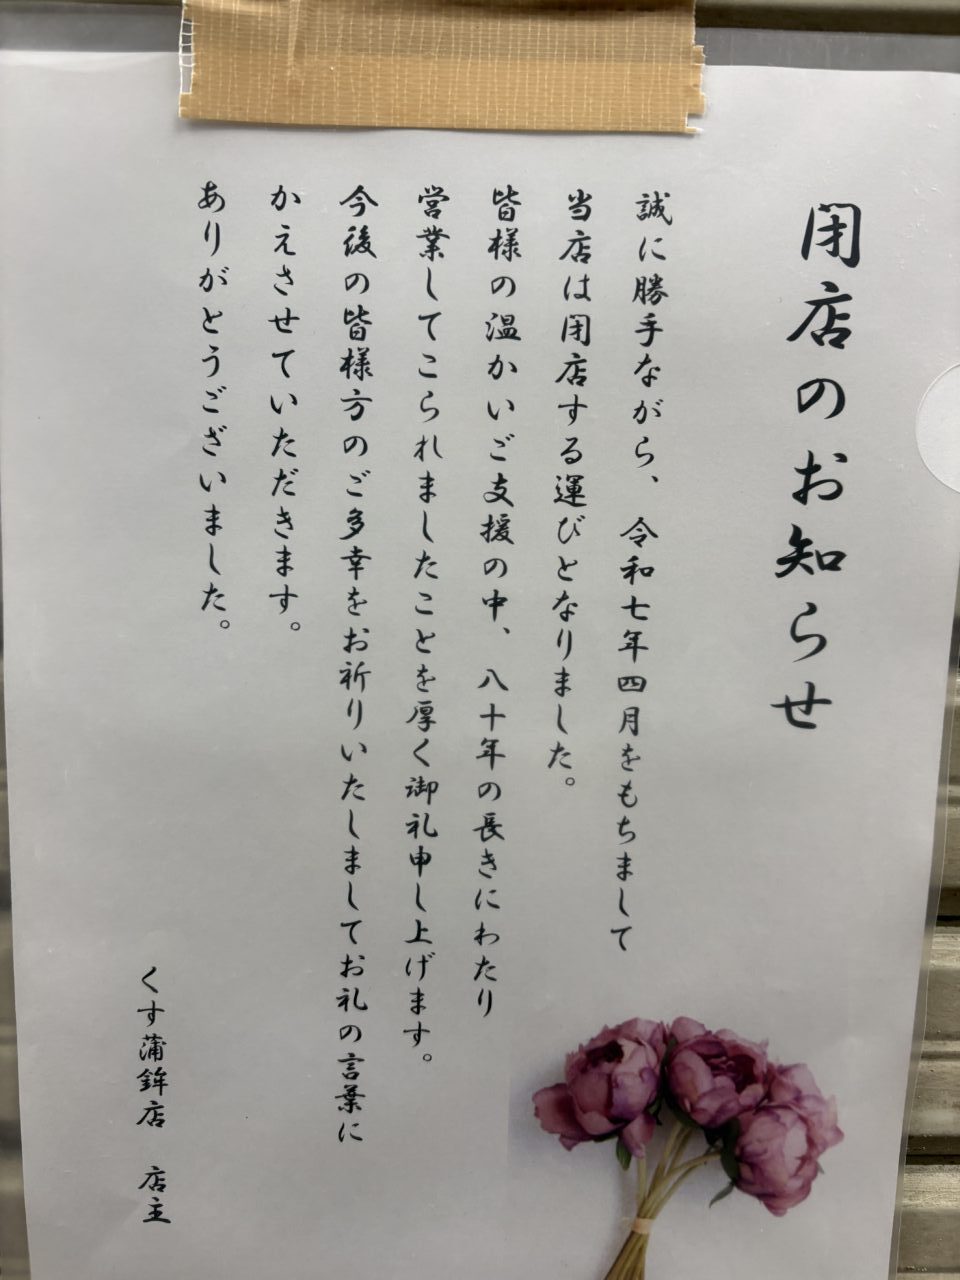 閉店のお知らせ
誠に勝手ながら、令和七年四月をもちまして
当店は閉店する運びとなりました。
皆様の温かいご支援の中、八十年の長きにわたり
営業してこられましたことを厚く御礼申し上げます。
今後の皆様方のご多幸をお祈りいたしましてお礼の言葉に
かえさせていただきます。
ありがとうございました。
くす蒲鉾店 店主